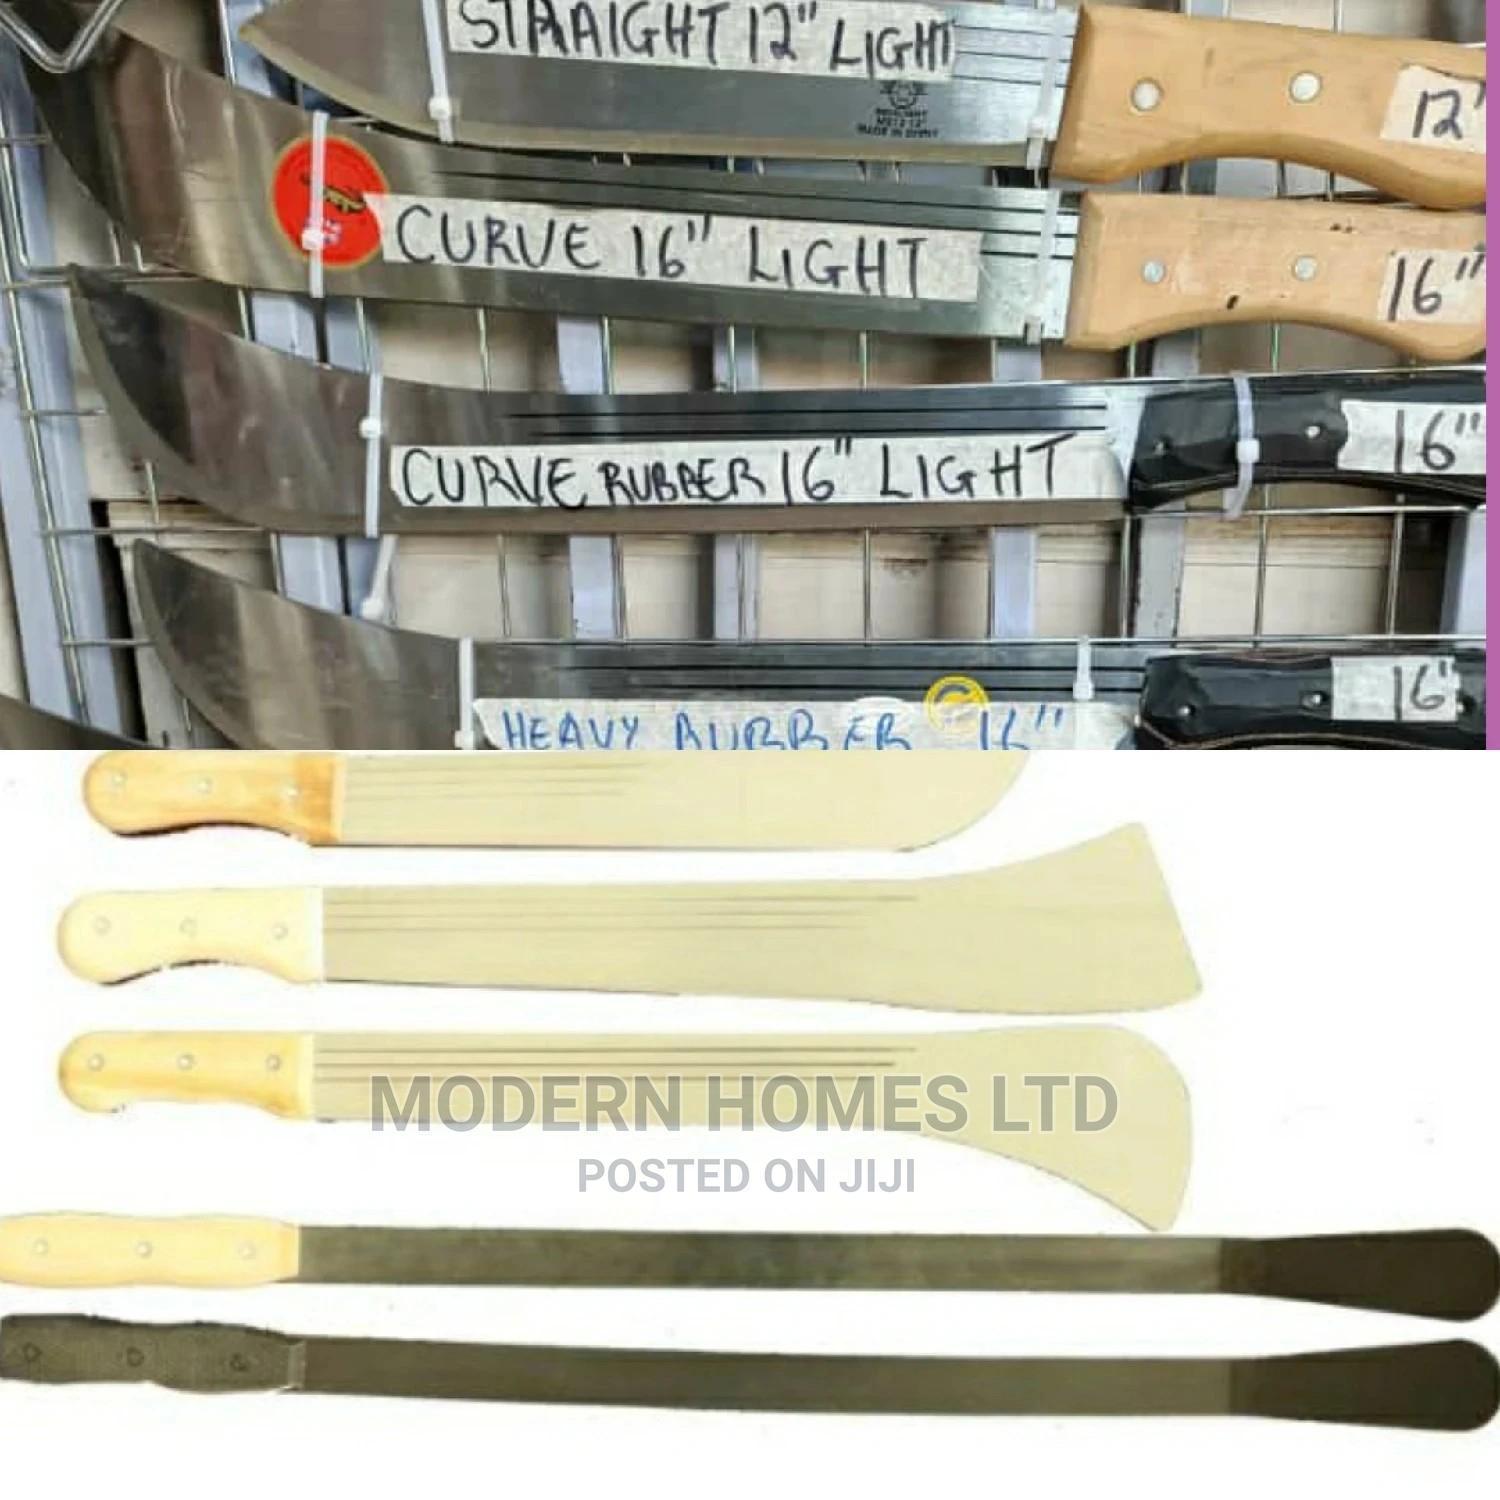 STRAIGHT 12" LIGHT
MADE IN EGYPT
12"
CURVE 16" LIGHT
16"
CURVE RUBBER 16" LIGHT
16"
HEAVY RUBBER 16"
16"
MODERN HOMES LTD
POSTED ON JIJI